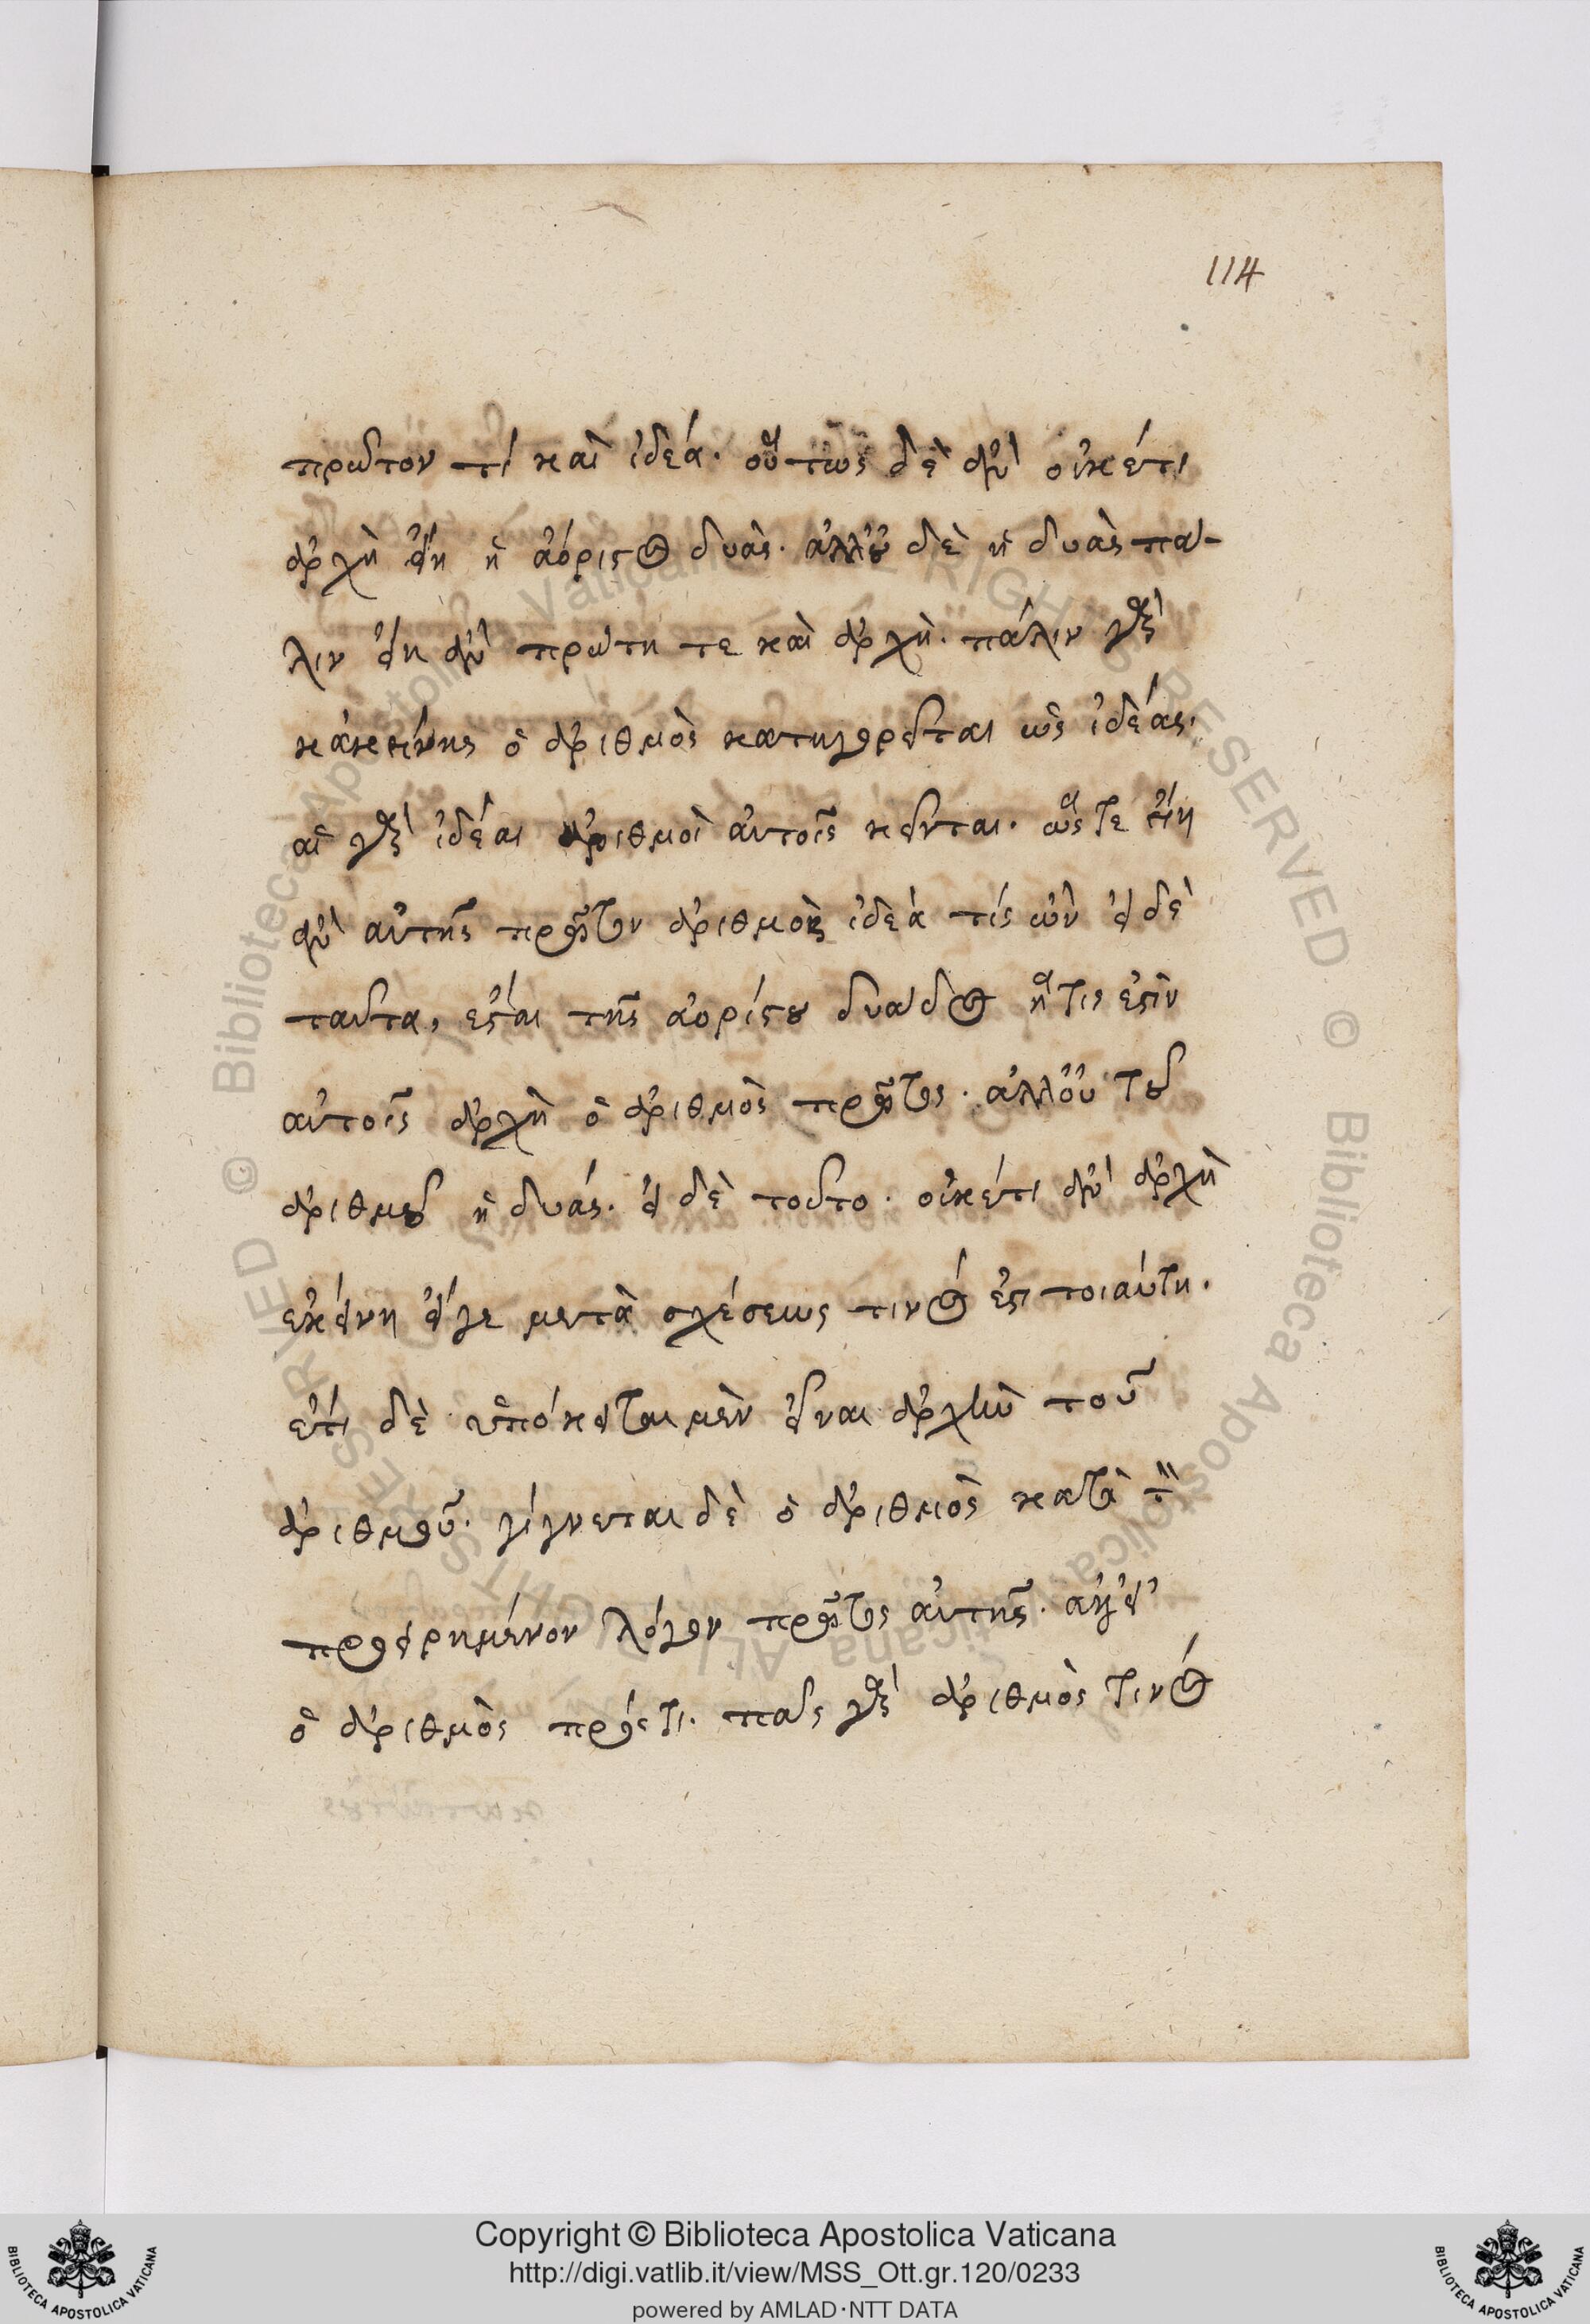 114
πρῶτον τί καὶ ἰδέα. οὕτως δὲ ἂν οὐκέτι
ἀρχὴ εἴη ἡ ἀόριστος δυὰς. ἀλλ' οὐ δὲ ἡ δυὰς πά-
λιν εἴη ἂν πρώτη τε καὶ ἀρχὴ. πάλιν γὰρ
κἀκείνης ὁ ἀριθμὸς κατηγορεῖται ὡς ἰδέας.
αἱ γὰρ ἰδέαι ἀριθμοὶ αὐτοῖς κεῖνται. ὥστε εἴη
ἂν αὐτῆς πρῶτον ἀριθμὸς ἰδέα τίς ὢν εἰ δὲ
ταῦτα, ἔσται τῆς ἀορίστου δυάδος ἥτις ἐστὶν
αὐτοῖς ἀρχὴ ὁ ἀριθμὸς πρῶτος. ἀλλ' οὐ τοῦ
ἀριθμοῦ ἡ δυάς. εἰ δὲ τοῦτο. οὐκέτι ἂν ἀρχὴ
ἐκείνη εἴγε μετὰ σχέσεως τινός ἐστι τοιαύτη.
ἔτι δὲ ὑπόκειται μὲν εἶναι ἀρχὴν τοῦ
ἀριθμοῦ. γίγνεται δὲ ὁ ἀριθμὸς κατὰ τὸν
προειρημένον λόγον πρῶτος αὐτῆς.
ὁ ἀριθμὸς πρός τι. πᾶς γὰρ ἀριθμὸς τινός
Copyright © Biblioteca Apostolica Vaticana
http://digi.vatlib.it/view/MSS_Ott.gr.120/0233
powered by AMLAD·NTT DATA
BIBLIOTECA APOSTOLICA VATICANA
BIBLIOTECA APOSTOLICA VATICANA